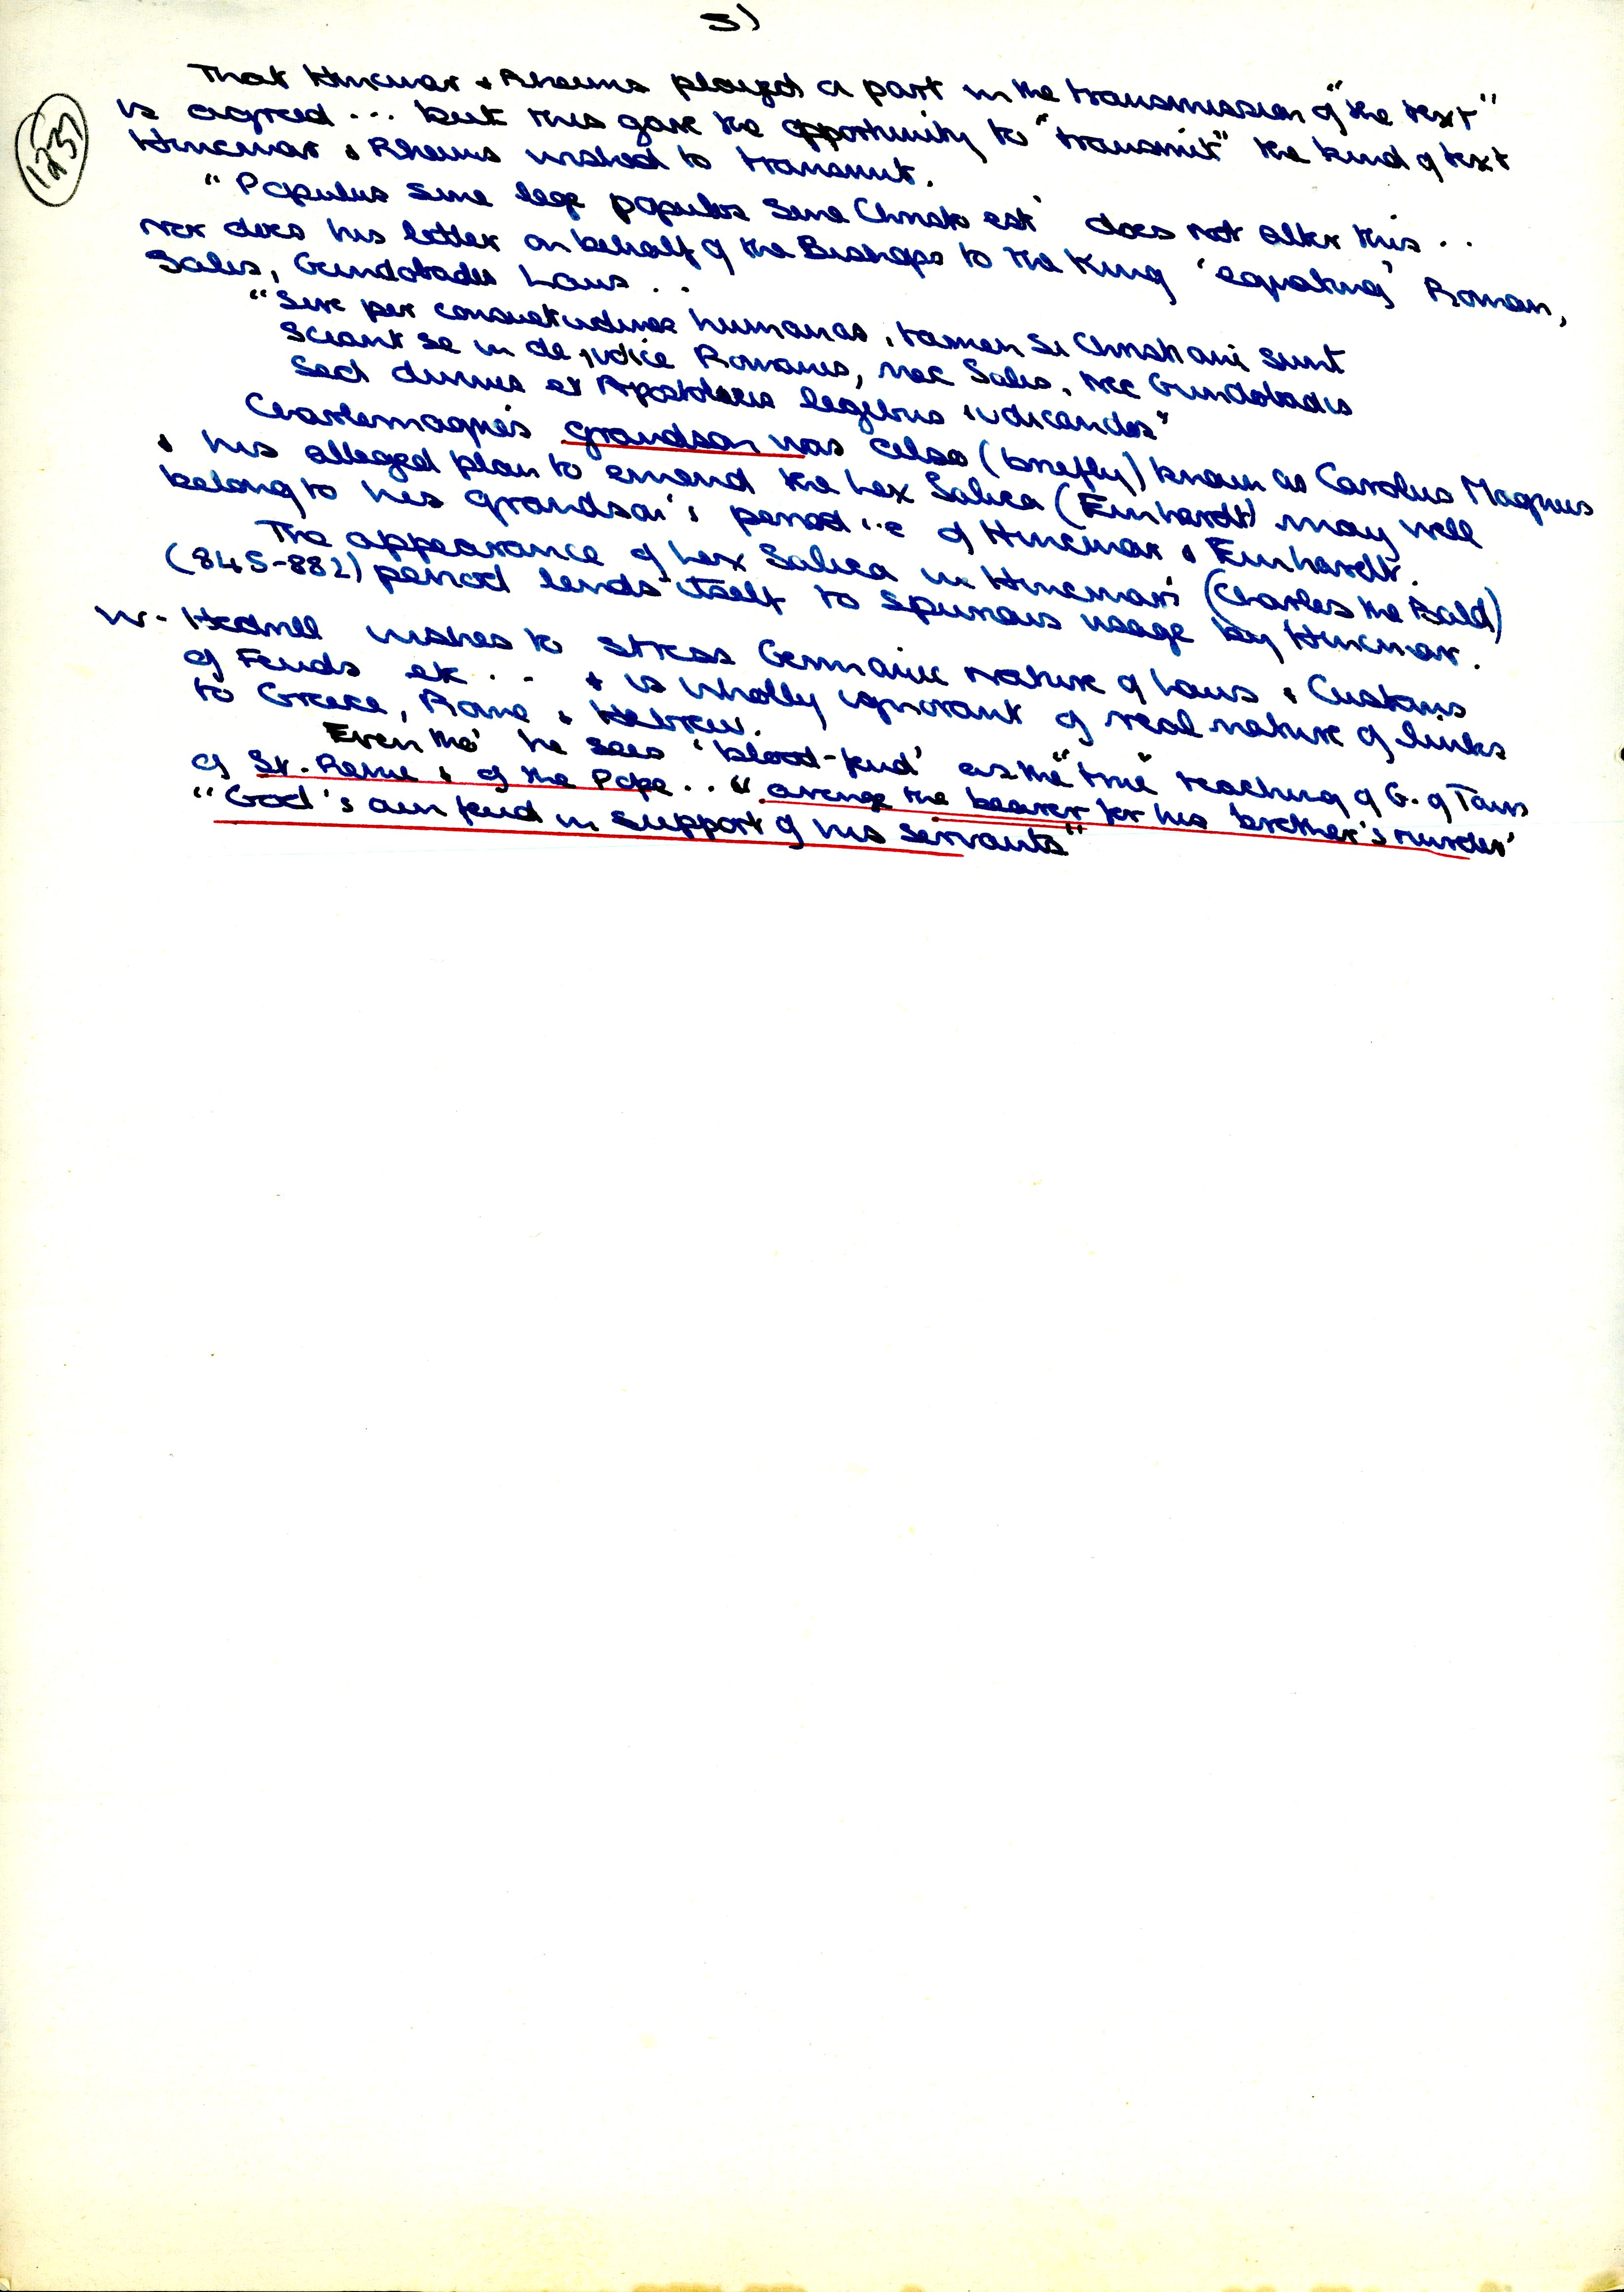 3)
1237
That Hincmar & Rheims played a part in the transmission of "the text"
is agreed ... but this gave the opportunity to "transmit" the kind of text
Hincmar & Rheims wished to transmit.
"Populus sine lege populus sine Christo est" does not alter this ..
nor does his letter on behalf of the Bishops to the King 'equating' Roman,
Salis, Gundobadis Laws ..
"Sive per consuetudines humanas, tamen si Christiani sunt
sciant se in de judice Romanis, nec Salis, nec Gundobadis
sed divinis et Apostolicis legibus iudicandos"
Charlemagne's grandson was also (briefly) known as Carolus Magnus
& his alleged plan to emend the Lex Salica (Einhardt) may well
belong to his grandson's period i.e of Hincmar & Einhardt.
The appearance of Lex Salica in Hincmar's (Charles the Bald)
(845-882) period lends itself to spurious usage by Hincmar.
W- Hadrill wishes to stress Germanic nature of Laws & Customs
of Feuds etc ... & is wholly ignorant of real nature of links
to Greece, Rome & Hebrew.
Even tho' he sees 'blood-feud' as the "true" teaching of G. of Tours
of St. Remi & of the Pope .. "avenge the bearer for his brother's murder"
"God's own feud in support of his servants"